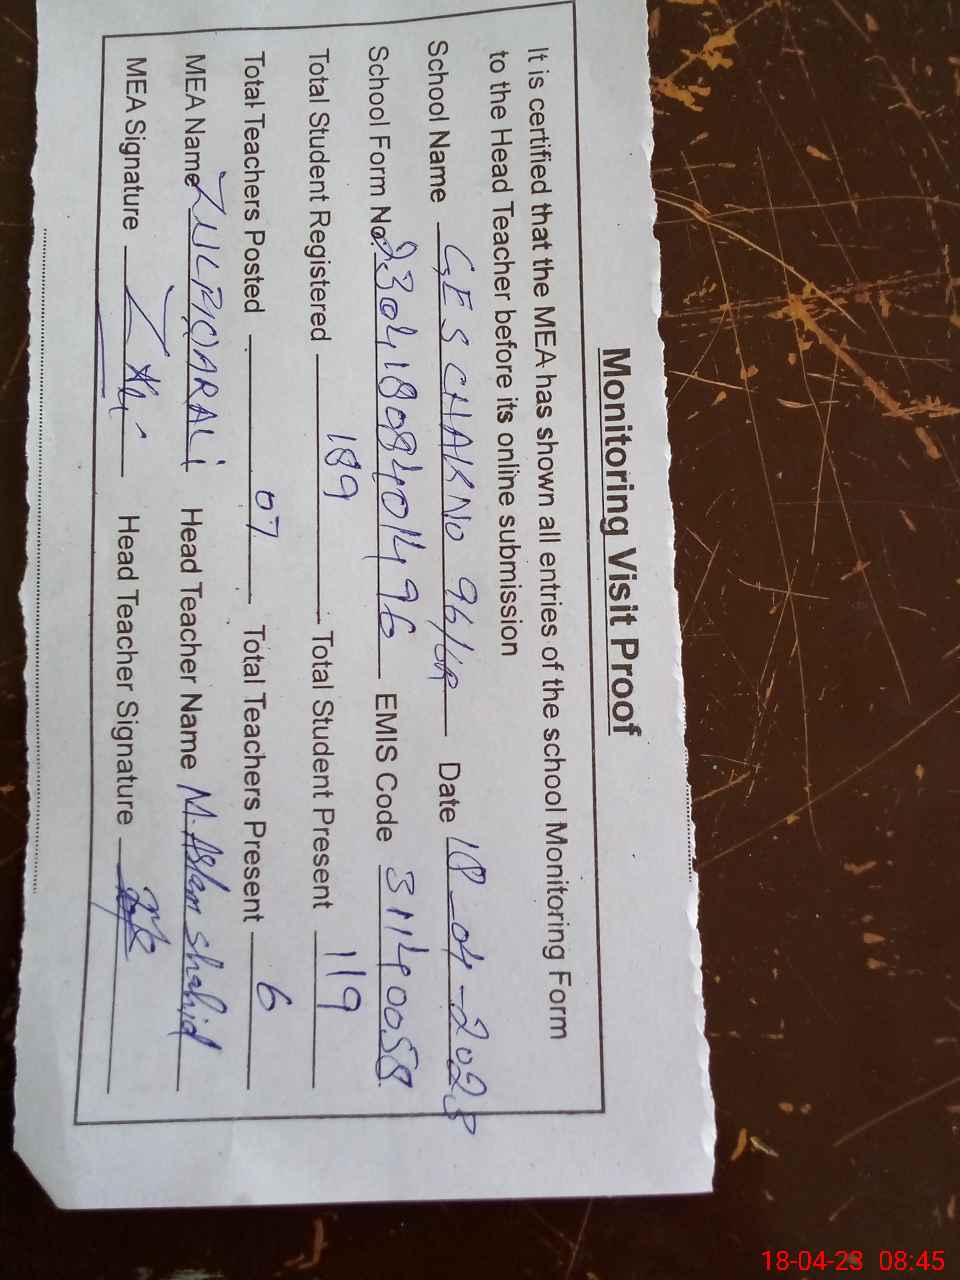 Monitoring Visit Proof
It is certified that the MEA has shown all entries of the school Monitoring Form
to the Head Teacher before its online submission
School Name GES CHAK NO 96/6R Date 18-04-2023
School Form No. 23041808401496 EMIS Code 31140058
Total Student Registered 189 Total Student Present 119
Total Teachers Posted 07 Total Teachers Present 6
MEA Name ZULFIQAR ALI Head Teacher Name M. Aslam Shahid
MEA Signature Head Teacher Signature
18-04-23 08:45